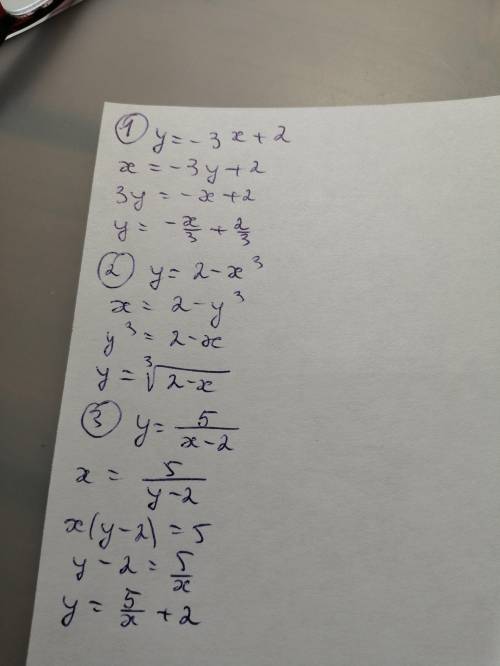 ① y = -3x + 2
x = -3y + 2
3y = -x + 2
y = -x/3 + 2/3
② y = 2 - x³
x = 2 - y³
y³ = 2 - x
y = ∛(2 - x)
③ y = 5/(x - 2)
x = 5/(y - 2)
x(y - 2) = 5
y - 2 = 5/x
y = 5/x + 2